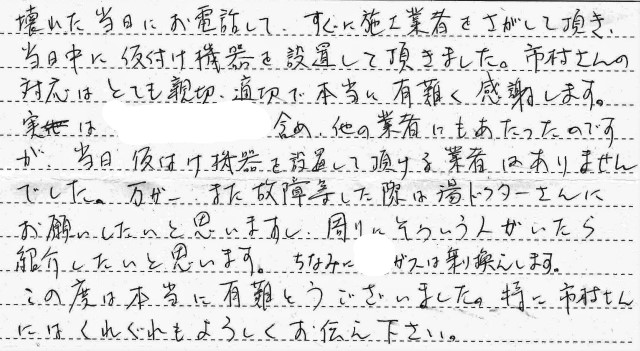 壊れた当日にお電話して、すぐに施工業者をさがして頂き、
当日中に仮付け機器を設置して頂きました。市村さんの
対応はとても親切、適切で本当に有難く感謝します。
実は 含め、他の業者にもあたったのです
が、当日仮付け機器を設置して頂ける業者はありません
でした。万が一また故障等した際は湯ドクターさんに
お願いしたいと思いますし、周りにそういう人がいたら
紹介したいと思います。ちなみに ガスは乗り換えします。
この度は本当に有難とうございました。特に市村さん
にはくれぐれもよろしくお伝え下さい。